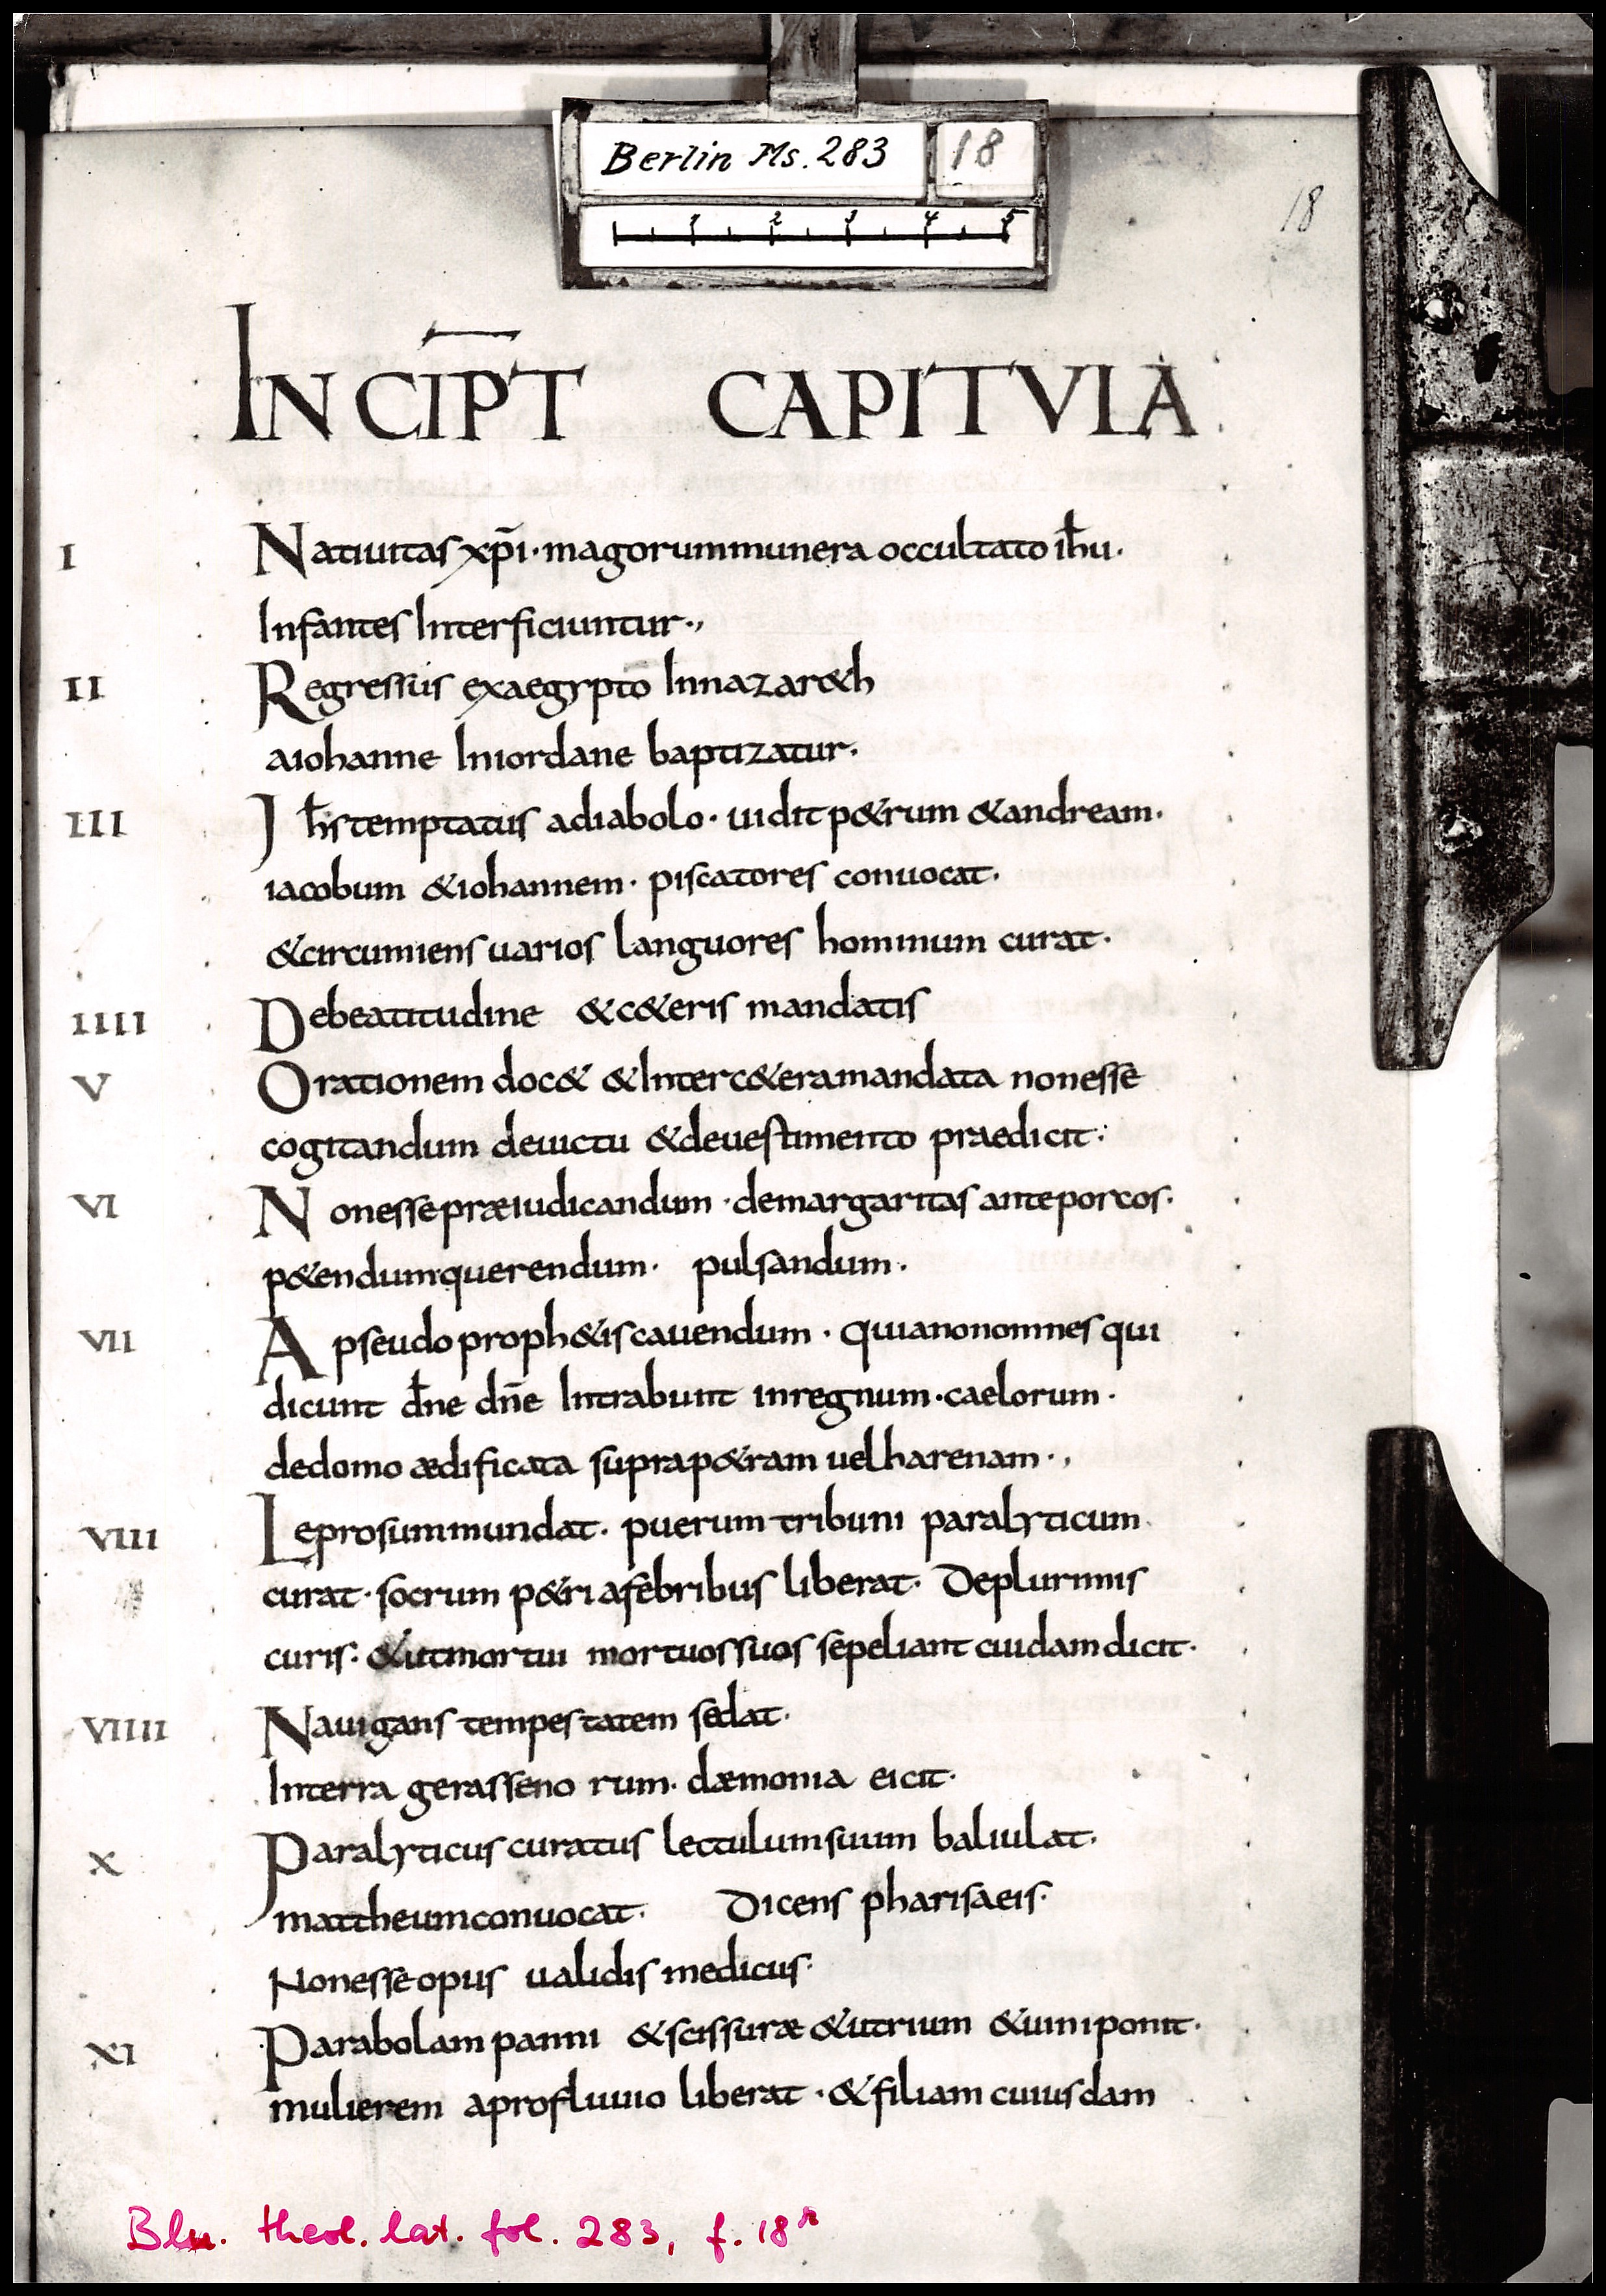 Berlin Ms. 283 18
1 2 3 4 5
18
INCIP̄T CAPITVLA
I Natiuitas xp̄i · magorummunera occultato ih̄u ·
Infantes Interficiuntur ·,
II Regressus exaegypto Innazar&h
aiohanne Iniordane baptizatur ·
III Ih̄s temptatus adiabolo · uidit p&rum &andream ·
iacobum &iohannem · piscatores conuocat ·
&circumiens uarios languores hominum curat ·
IIII Debeatitudine &c&eris mandatis
V Orationem doc& &Interc&eramandata nonesse
cogitandum deuictu &deuestimento praedicit :
VI Nonesse præiudicandum · demargaritas anteporcos ·
p&endumquerendum · pulsandum ·
VII Apseudo proph&is cauendum · quianonomnes qui
dicunt dn̄e dn̄e Intrabunt inregnum · caelorum ·
dedomo ædificata suprap&ram uelharenam ·,
VIII Leprosummundat · puerum tribuni paralyticum
curat · socrum p&ri afebribus liberat · Deplurimis
curis · &utmortui mortuossuos sepeliant cuidam dicit ·
VIIII Nauigans tempestatem sedat ·
Interra gerasseno rum · dæmonia eicit ·
X Paralyticus curatus lectulumsuum baliulat ·
mattheumconuocat · Dicens pharisaeis ·
Nonesse opus ualidis medicus ·
XI Parabolam panni &scissuræ &utrium &uiniponit ·
mulierem aprofluuio liberat · &filiam cuiusdam
Bln. theol. lat. fol. 283, f. 18r